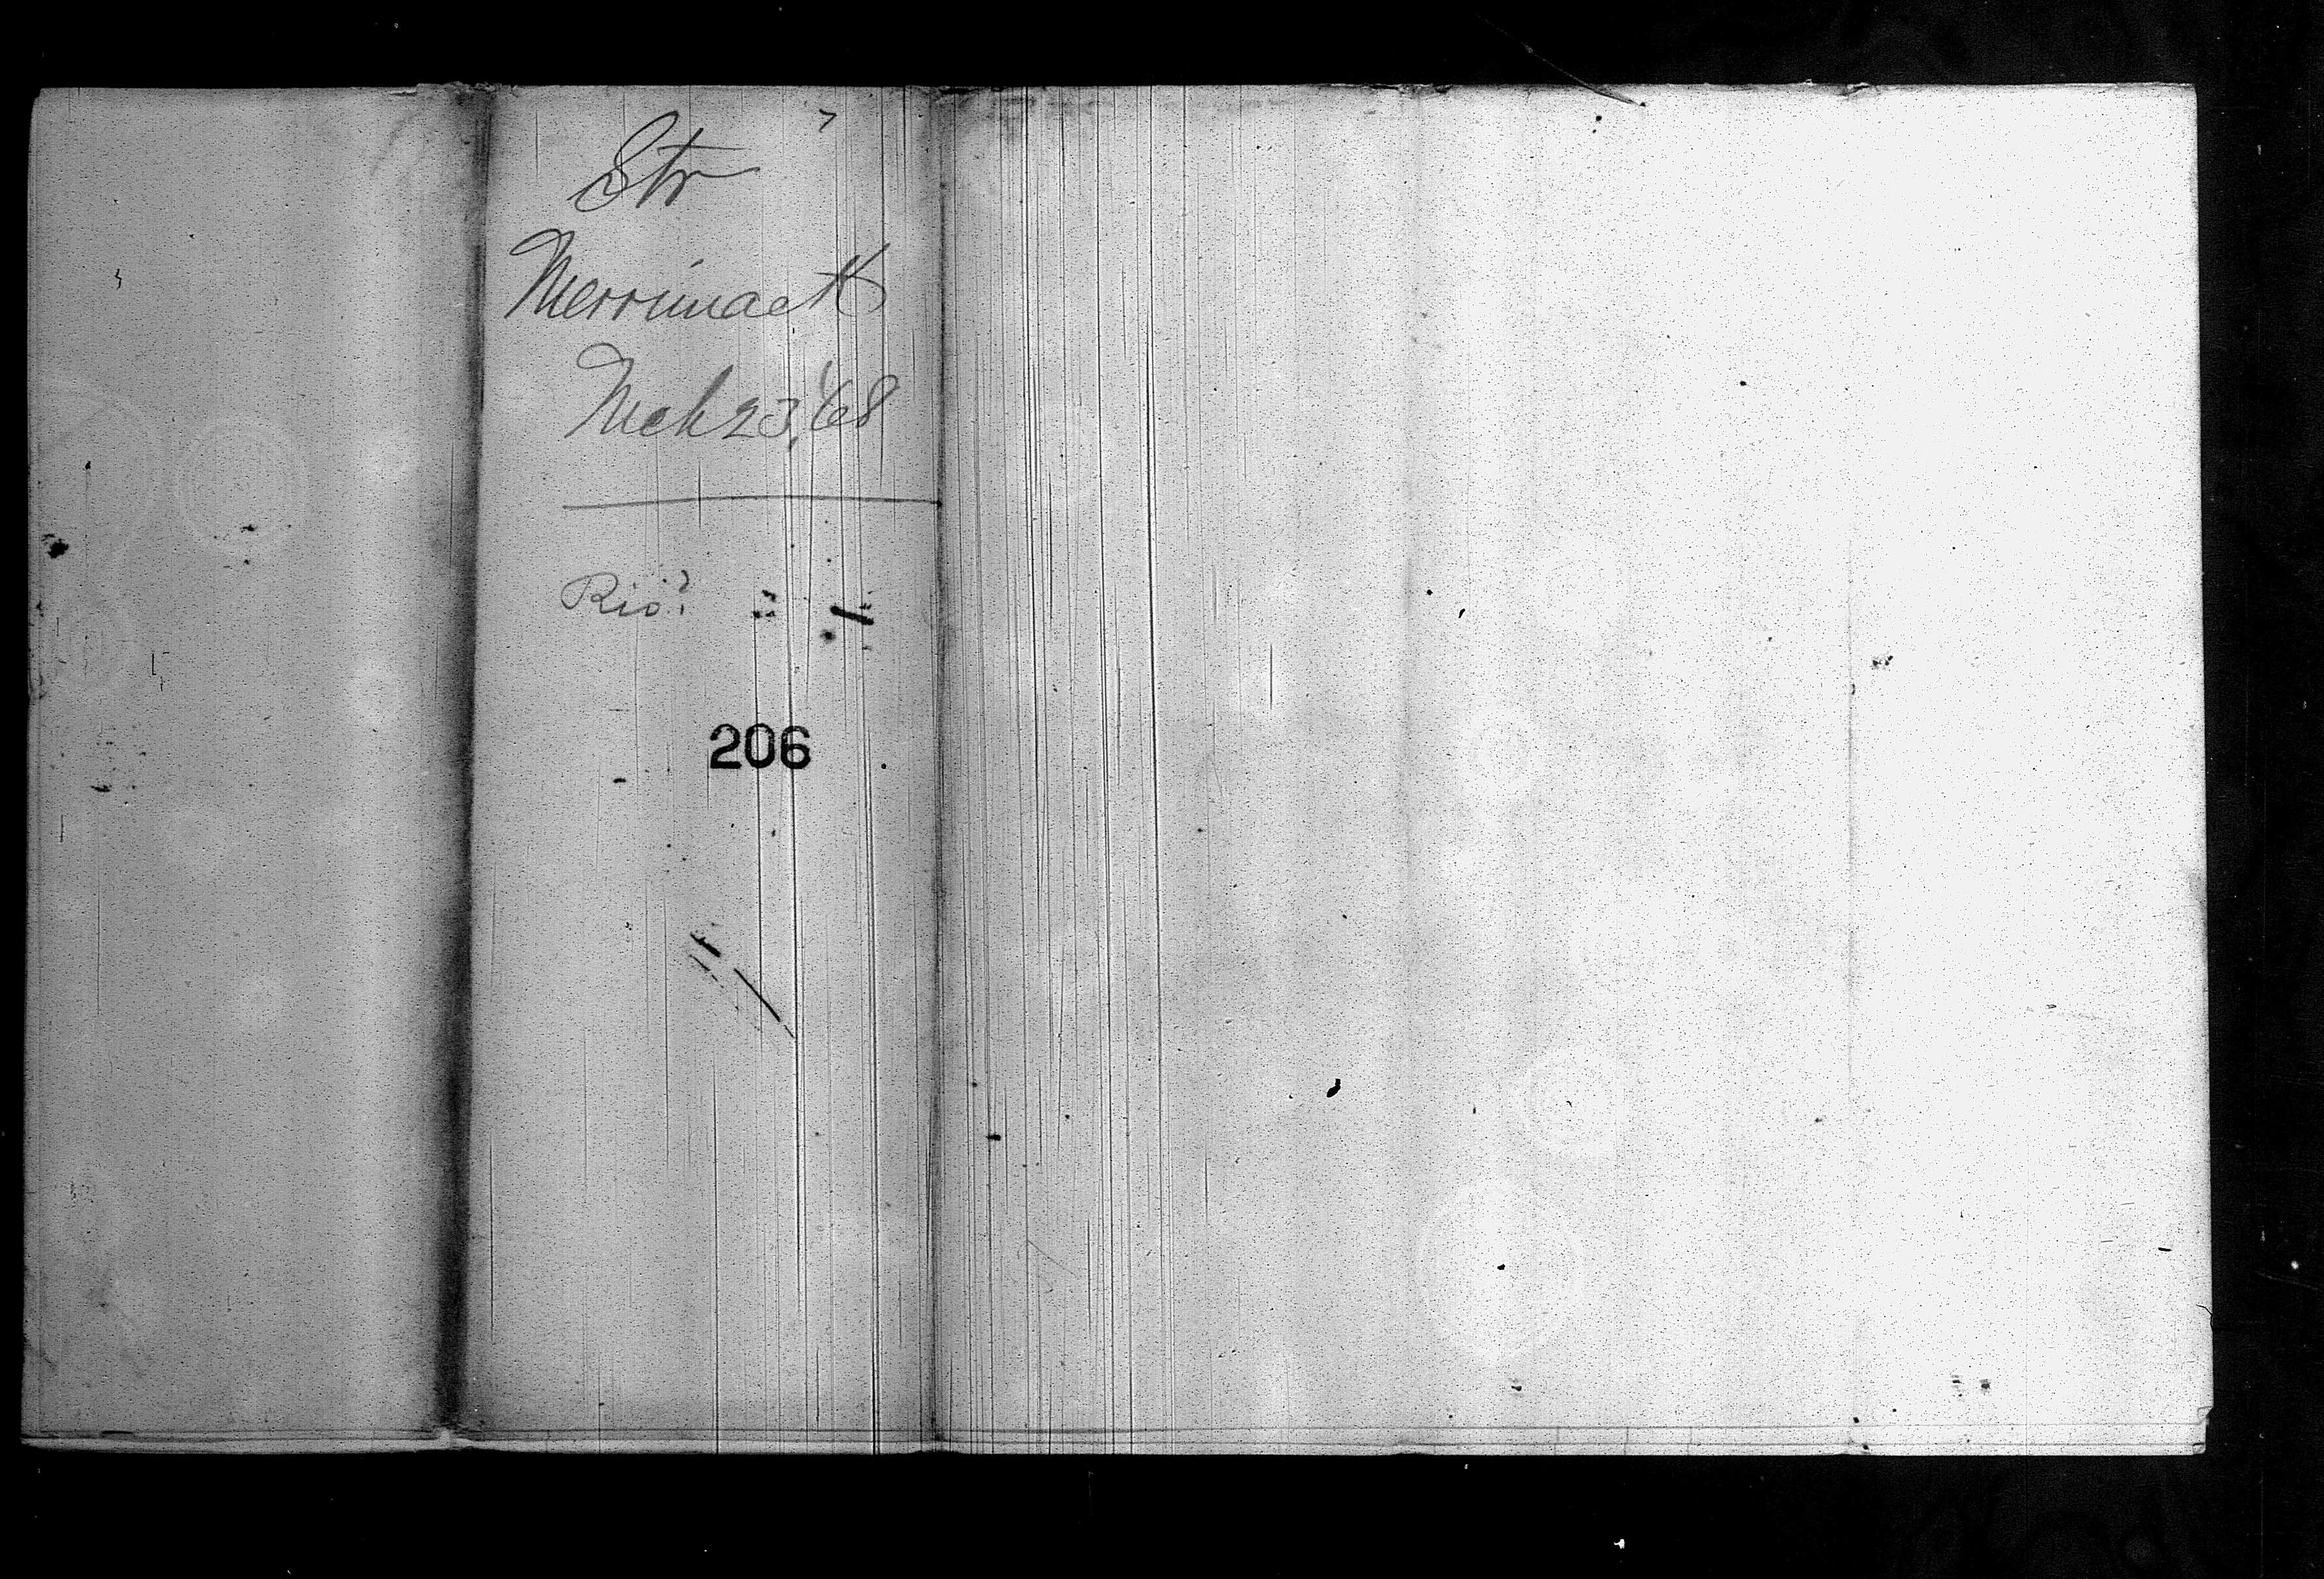 Str
Merrimack
Mch 23, '68
Rio?
206